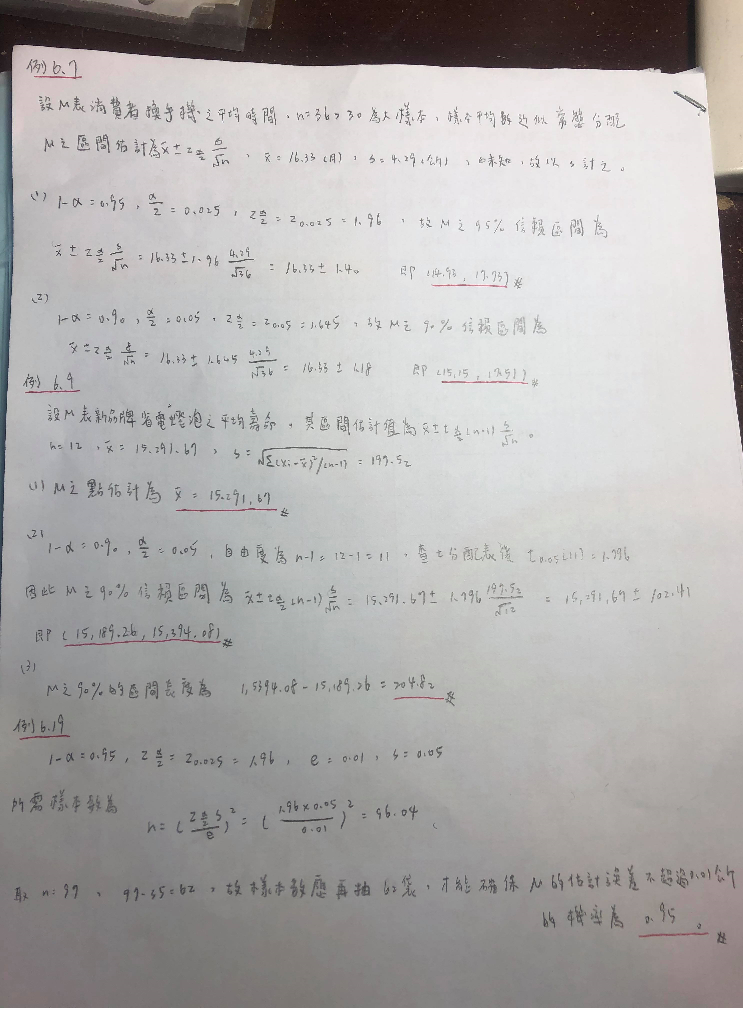 例6.7
設M表消費者換手機之平均時間,n=36>30為大樣本,樣本平均數近似常態分配
M之區間估計為x̄±z α/2 s/√n,x̄=16.33(月),s=4.29(月),σ未知,故以s計之。
(1) 1-α=0.95,α/2=0.025,z α/2=z0.025=1.96,故M之95%信賴區間為
x̄±z α/2 s/√n=16.33±1.96 4.29/√36=16.33±1.40 即(14.93,17.73)※
(2)
1-α=0.90,α/2=0.05,z α/2=z0.05=1.645,故M之90%信賴區間為
x̄±z α/2 s/√n=16.33±1.645 4.29/√36=16.33±1.18 即(15.15,17.51)※
例6.9
設M表新品牌省電燈泡之平均壽命,其區間估計值為x̄±t α/2(n-1) s/√n。
n=12,x̄=15.291.67,s=√Σ(xi-x̄)²/(n-1)=197.52
(1) M之點估計為 x̄=15.291,67※
(2)
1-α=0.90,α/2=0.05,自由度為n-1=12-1=11,查t分配表後t0.05(11)=1.796
因此M之90%信賴區間為x̄±t α/2(n-1) s/√n=15.291.67±1.796 197.52/√12=15,291.67±102.41
即(15,189.26,15,394.08)※
(3)
M之90%的區間長度為 1,5394.08-15,189.26=204.82※
例6.19
1-α=0.95,z α/2=z0.025=1.96,e=0.01,s=0.05
所需樣本數為
n=(z α/2 s/e)²=(1.96×0.05/0.01)²=96.04
取n=97,97-35=62,故樣本數應再抽62袋,才能確保M的估計誤差不超過0.01公斤
的機率為 0.95。※